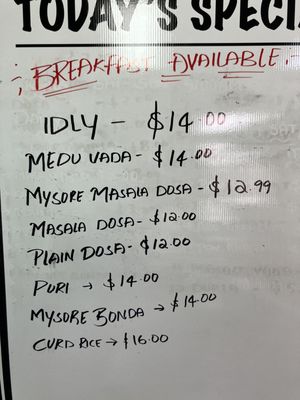 TODAY'S SPECI
BREAKFAST AVAILABLE.
IDLY - $14.00
MEDU VADA - $14.00
MYSORE MASALA DOSA - $12.99
MASALA DOSA - $12.00
PLAIN DOSA - $12.00
PURI → $14.00
MYSORE BONDA → $14.00
CURD RICE → $16.00